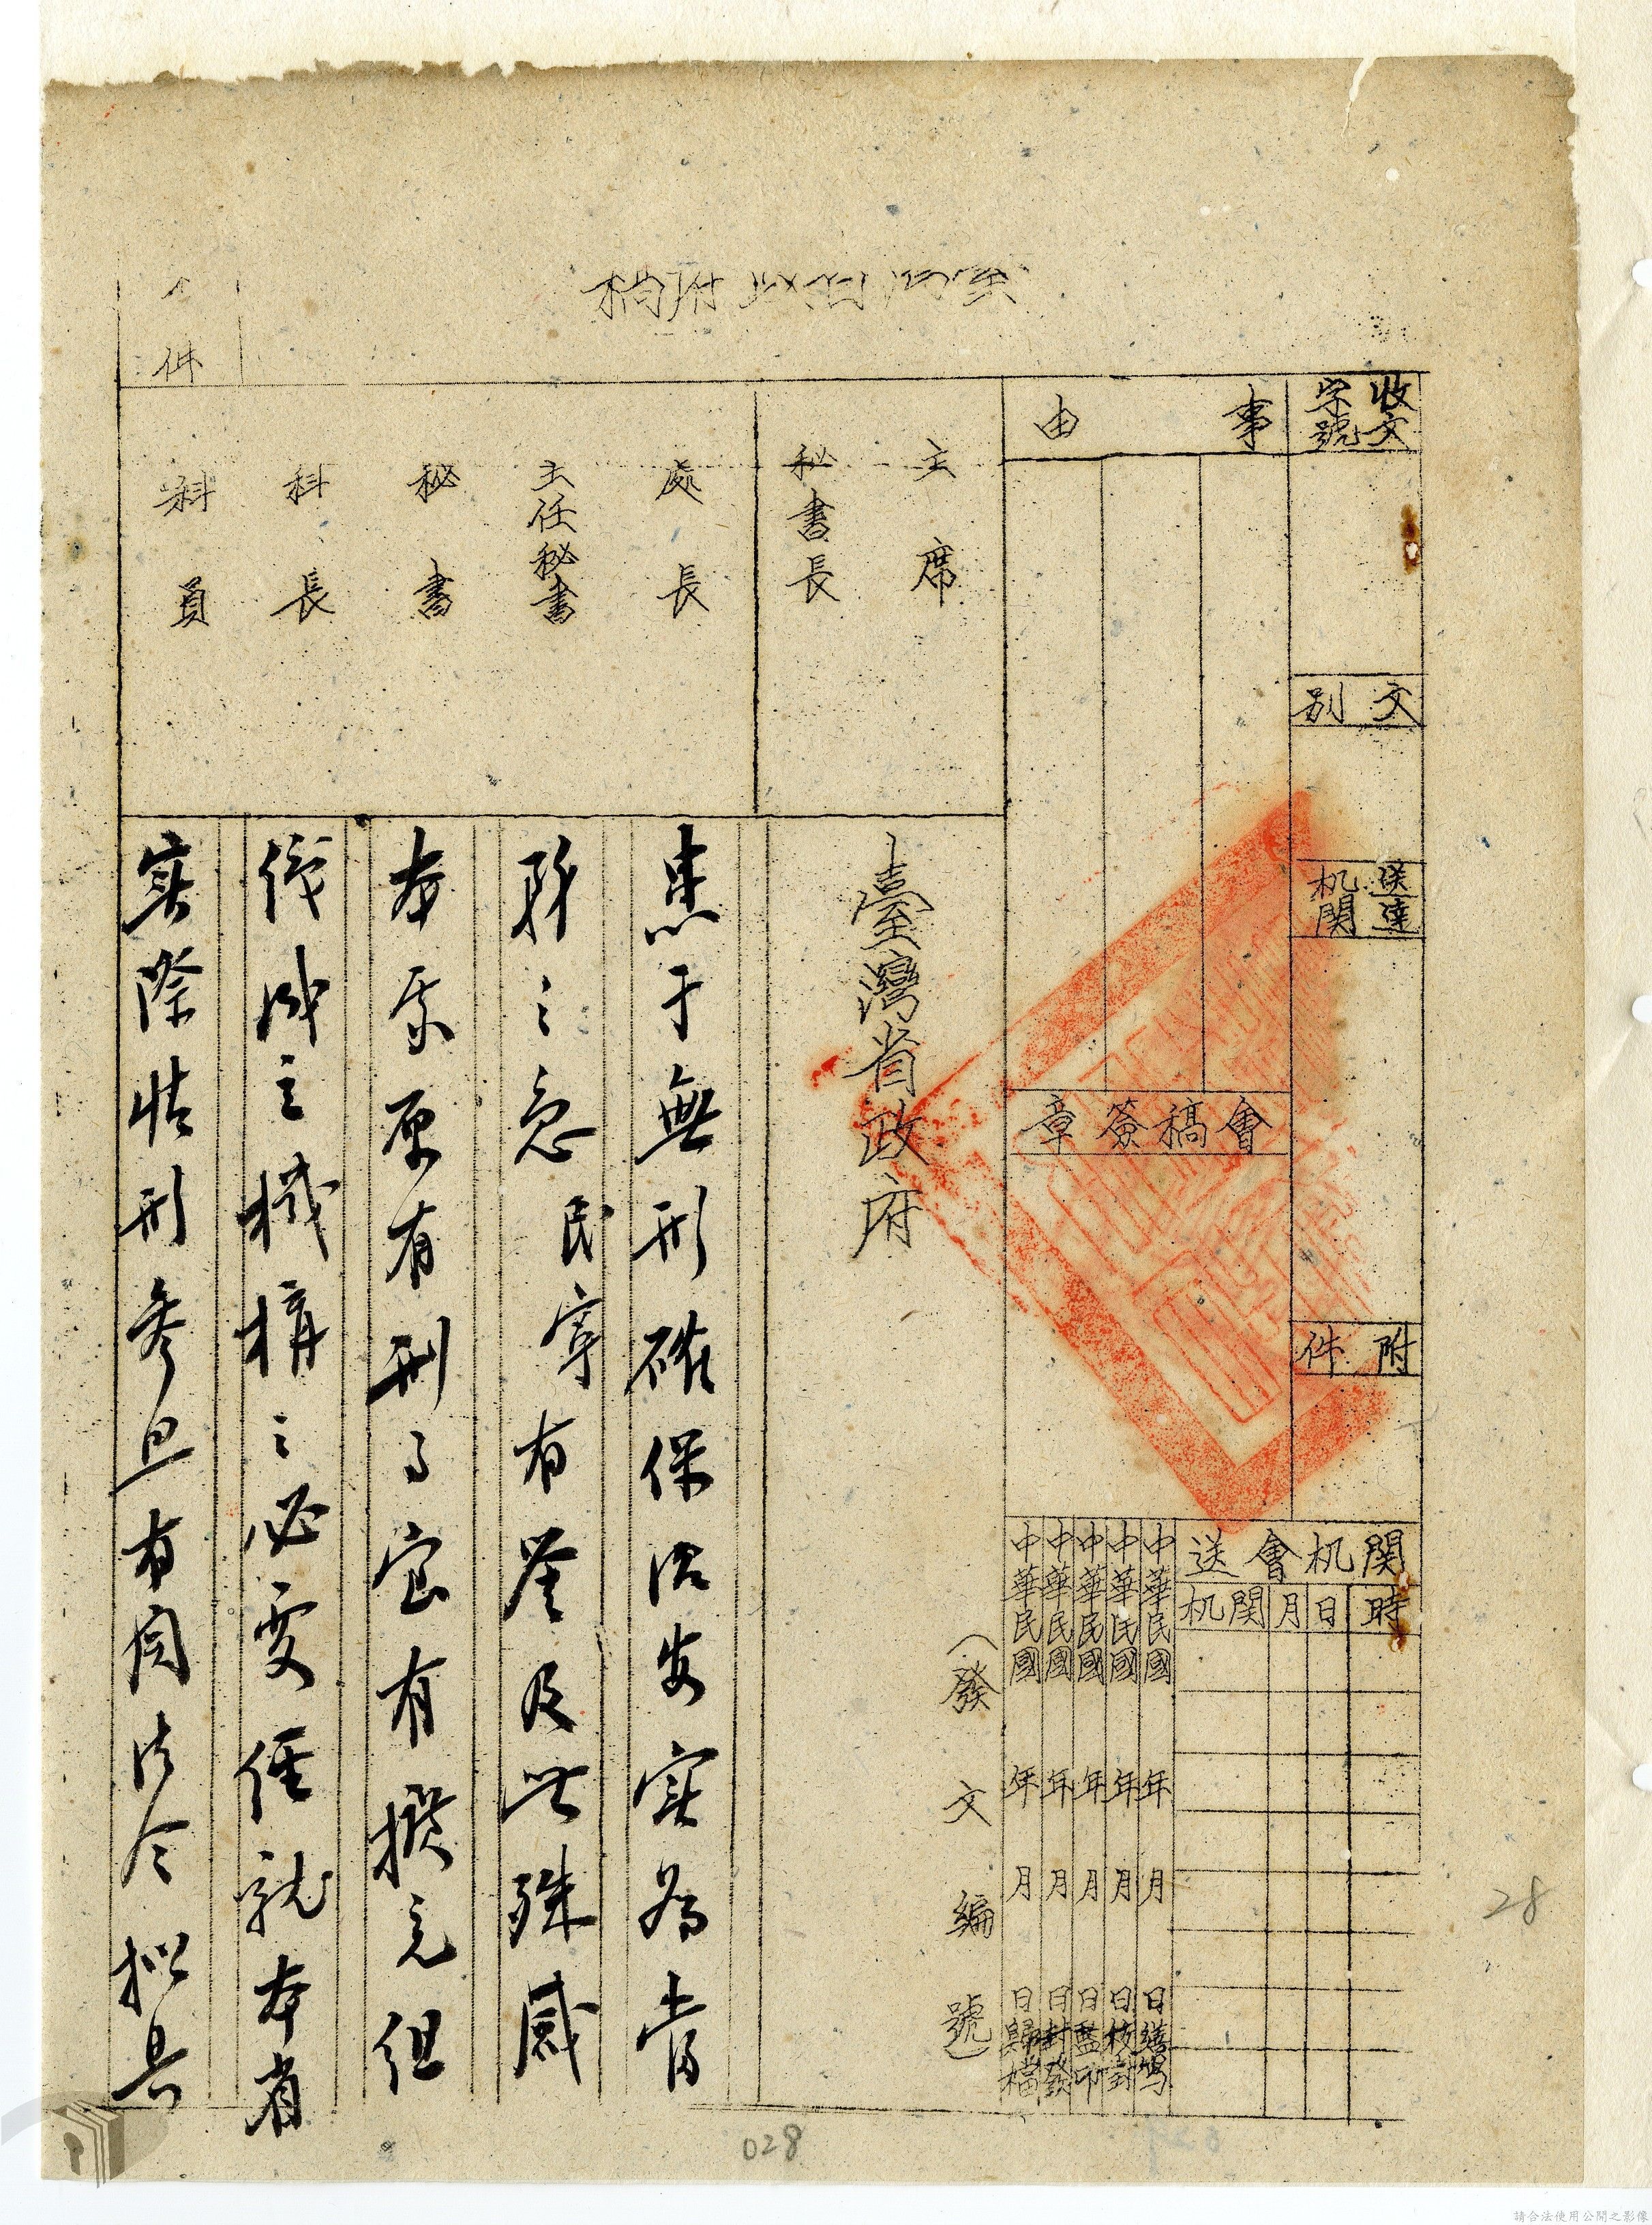 臺灣省政府稿
件
收文
字號
文別
送達
机関
附件
事由
會稿簽章
関机會送
時日月関机
中華民國 年 月 日繕寫
中華民國 年 月 日校對
中華民國 年 月 日監印
中華民國 年 月 日封發
中華民國 年 月 日歸檔
(發文編號)
主席
秘書長
處長
主任秘書
秘書
科長
科員
臺灣省政府
患于無形確保治安實為當
務之急 民寧有鑒及此殊感
本系原有刑事室有撥充但
儀成立機構之必要經就本省
實際情形參照有関法令擬具
028
28
請合法使用公開之影像